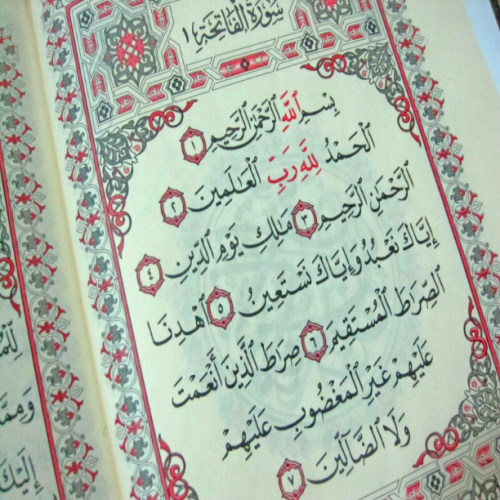 سُورَةُ الْفَاتِحَةِ ١
بِسْمِ ٱللَّهِ ٱلرَّحْمَٰنِ ٱلرَّحِيمِ ١
ٱلْحَمْدُ لِلَّهِ رَبِّ ٱلْعَٰلَمِينَ ٢
ٱلرَّحْمَٰنِ ٱلرَّحِيمِ ٣ مَٰلِكِ يَوْمِ ٱلدِّينِ ٤
إِيَّاكَ نَعْبُدُ وَإِيَّاكَ نَسْتَعِينُ ٥ ٱهْدِنَا
ٱلصِّرَٰطَ ٱلْمُسْتَقِيمَ ٦ صِرَٰطَ ٱلَّذِينَ أَنْعَمْتَ
عَلَيْهِمْ غَيْرِ ٱلْمَغْضُوبِ عَلَيْهِمْ
وَلَا ٱلضَّآلِّينَ ٧